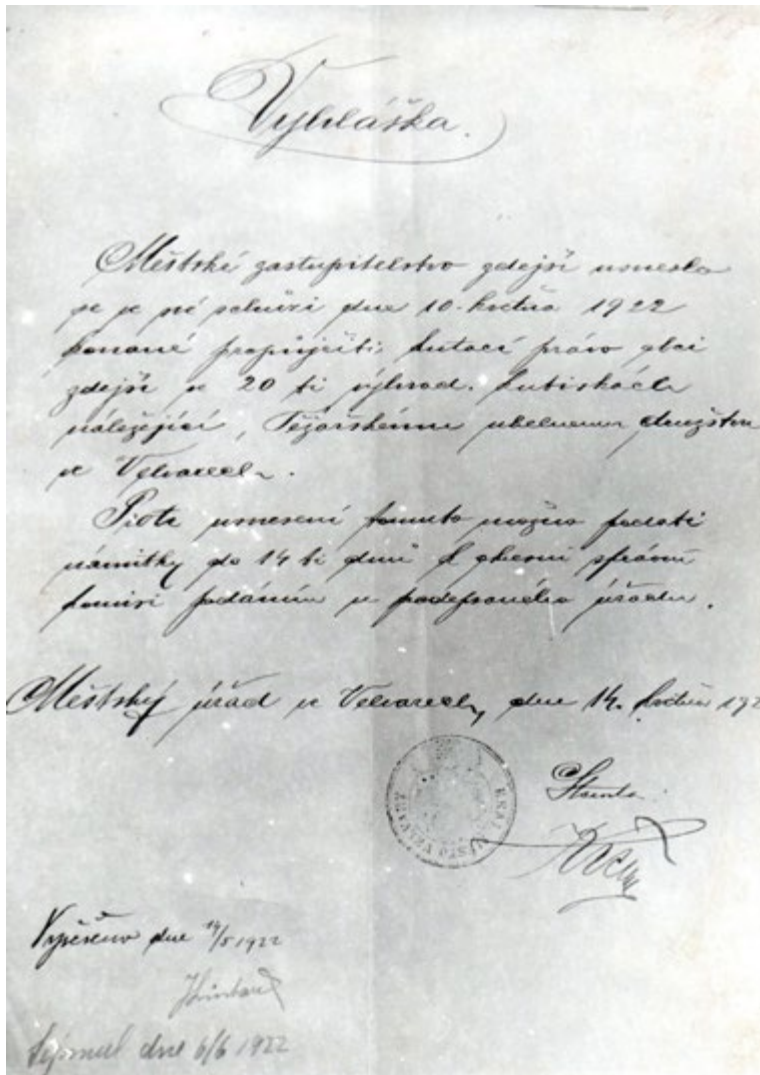 Vyhláška.
Městské zastupitelstvo zdejší usneslo
se ve své schůzi dne 10. května 1922
konané propůjčiti kutací právo obci
zdejší ve 20 ti výhrad. kutiskách
náležející, Těžařskému uhelnému družstvu
ve Velvarech.
Proti usnesení tomuto možno podati
námitky do 14 ti dnů k okresní správní
komisi podáním u podepsaného úřadu.
Městský úřad ve Velvarech, dne 14. května 192
KRÁL MĚSTO VELVARY
Starosta
Vyvěšeno dne 14/5 1922
Sejmul dne 6/6 1922